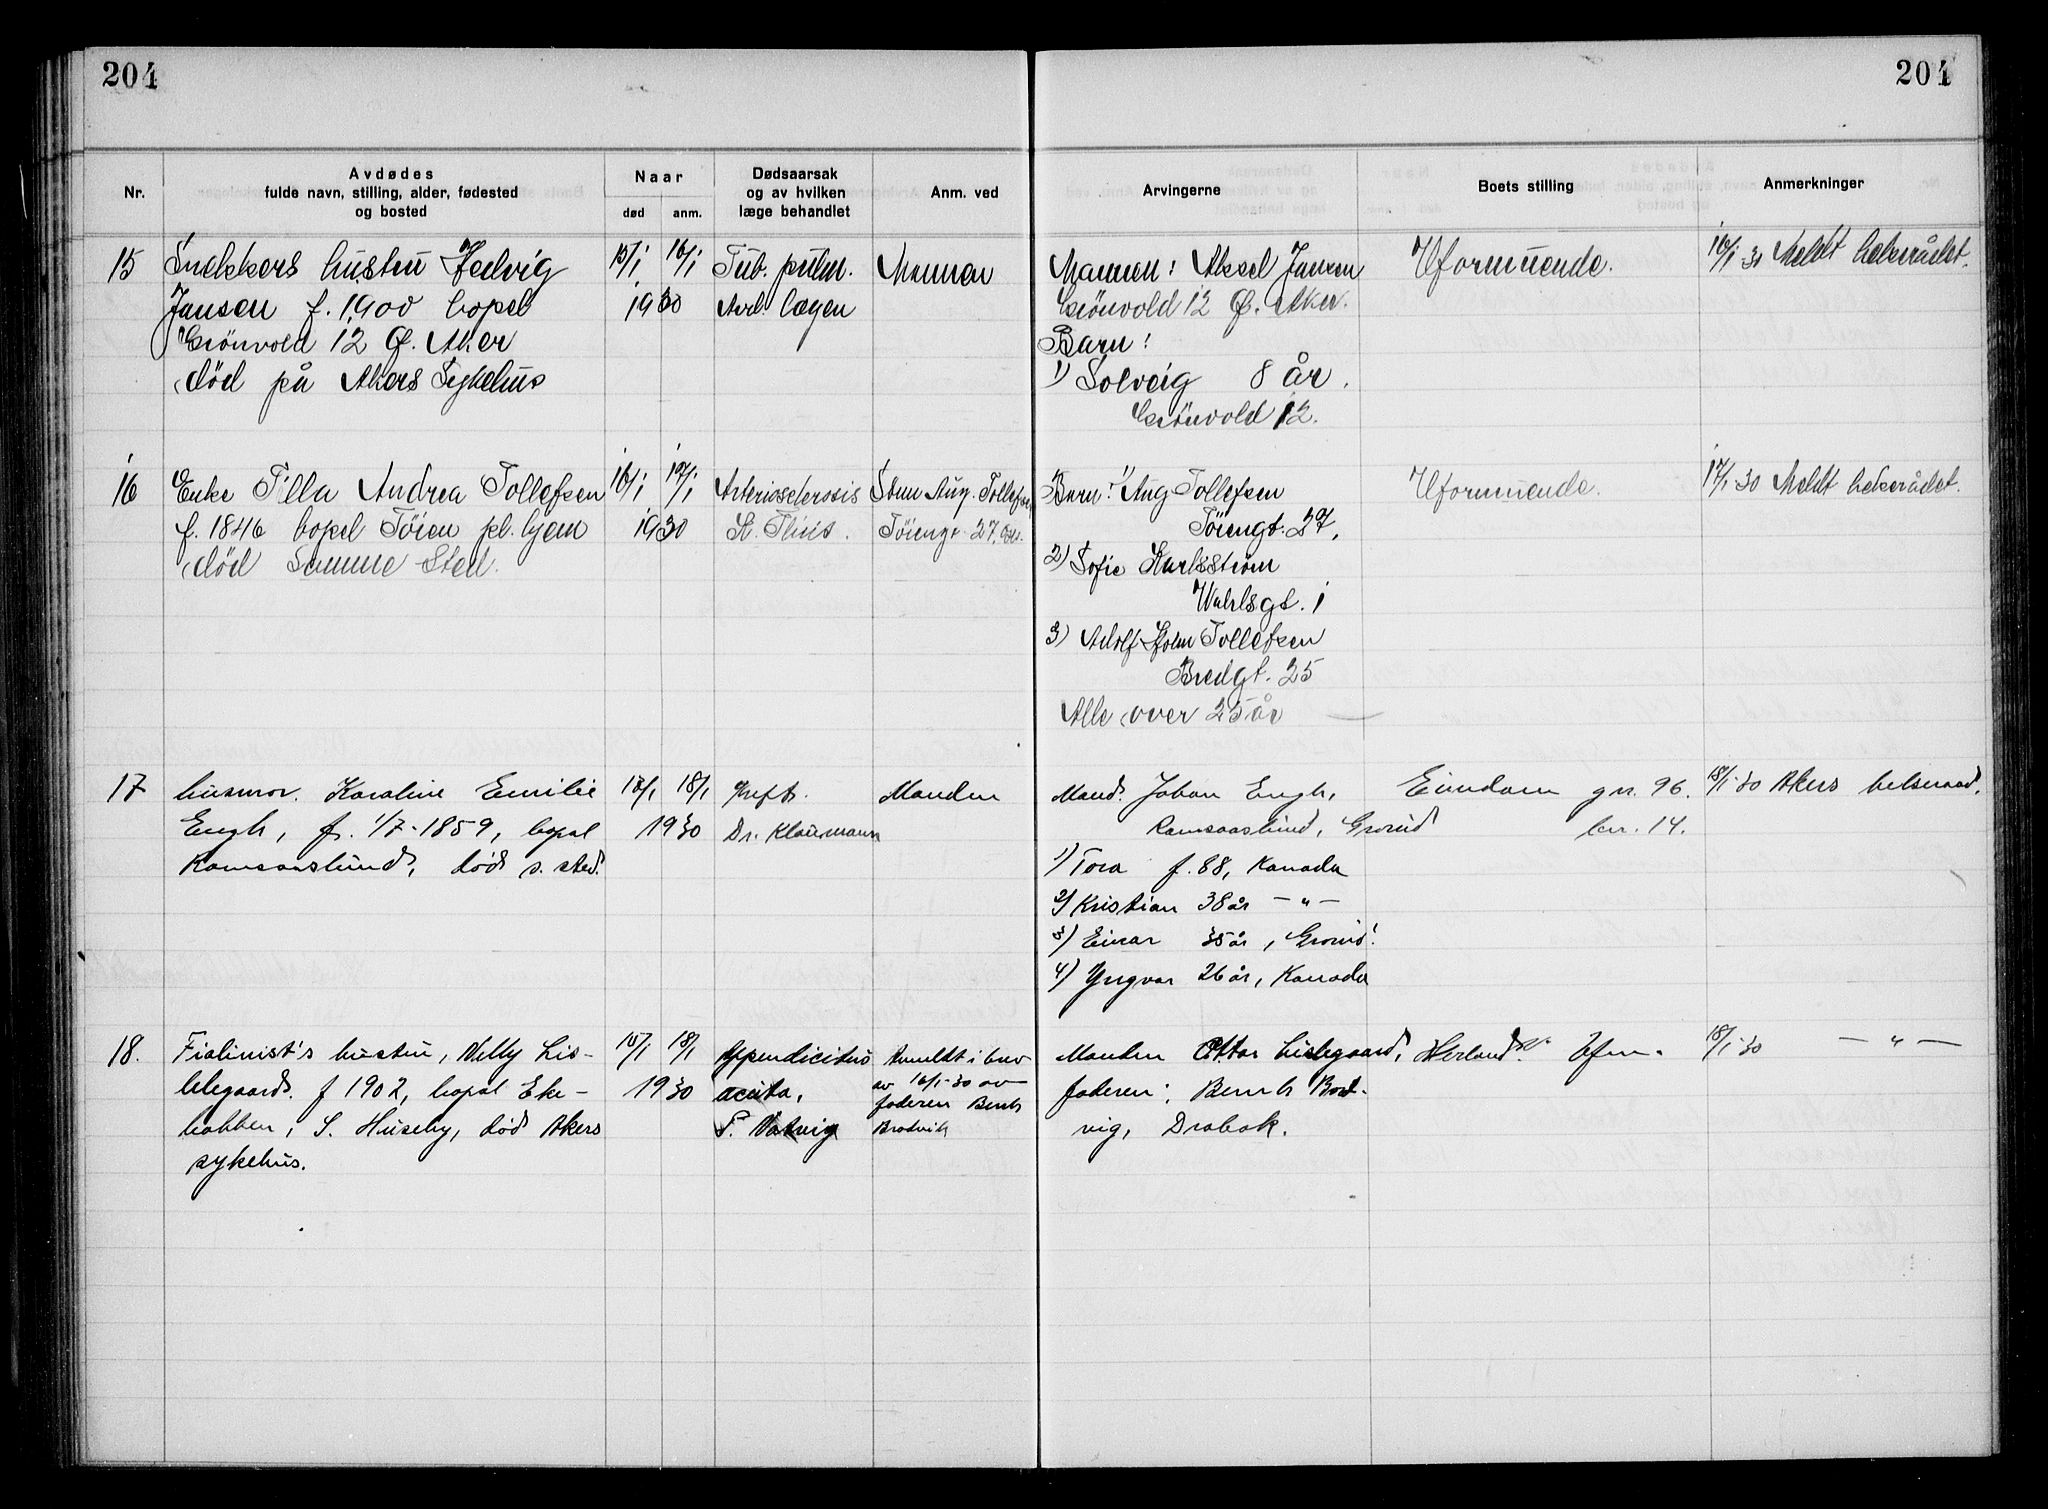 204
204
Nr.
Avdødes
fulde navn, stilling, alder, fødested
og bosted
Naar
død
anm.
Dødsaarsak
og av hvilken
læge behandlet
Anm. ved
Arvingerne
Boets stilling
Anmerkninger
15
Snekkers hustru Hedvig
Jansen f. 1900 bopel
Grönvold 12 Ø. Aker
död på Akers Sykehus
15/1 16/1
1930
Tub. pulm.
Avd. lægen
Mannen
Mannen: Aksel Jansen
Grönvold 12 Ø. Aker.
Barn:
1) Solveig 8 år.
Grönvold 12.
Uformuende.
16/1 30 Meldt helserådet.
16
Enke Tilla Andrea Tollefsen
f. 1846 bopel Töien pl. hjem
död Samme Sted.
16/1 17/1
1930
Arteriosclerosis
Sönn Aug. Tollefsen
Töiengt. 27, Oslo.
Barn: 1) Aug Tollefsen
Töiengt. 27,
2) Sofie Karlsström
Wahlsgt. 1
3) Adolf Holm Tollefsen
Bredgt. 25
Alle over 25 år
Uformuende.
17/1 30 Meldt helserådet.
17
husmor. Karoline Emilie
Engh, f. 1/7-1859, bopal
Ramsaaslund, död s. sted.
18/1
1930
Dr. Klaumann
Manden
Mand. Johan Engh,
Ramsaaslund, Grorud
1) Tora f. 88, Kanada
2) Kristian 38 år — " —
3) Einar 35 år, Grorud.
4) Yngvar 26 år, Kanada
Eiendom gnr. 96.
bnr. 14.
18/1 30 Akers helseraad.
18.
Fiolinist's hustru, Nelly Lis-
lelegaard. f 1902, bopal Eke-
bakken, S. Huseby, död Akers
sykehus.
15/1 18/1
1930
Appendicitus
acuta,
Anmeldt i brev
av 16/1-30 av
faderen Bernh
Brodvik
Manden Ottar Lislegaard,
faderen: Bernh Brod-
vig, Drøbak.
Ufm.
18/1 30 — " —